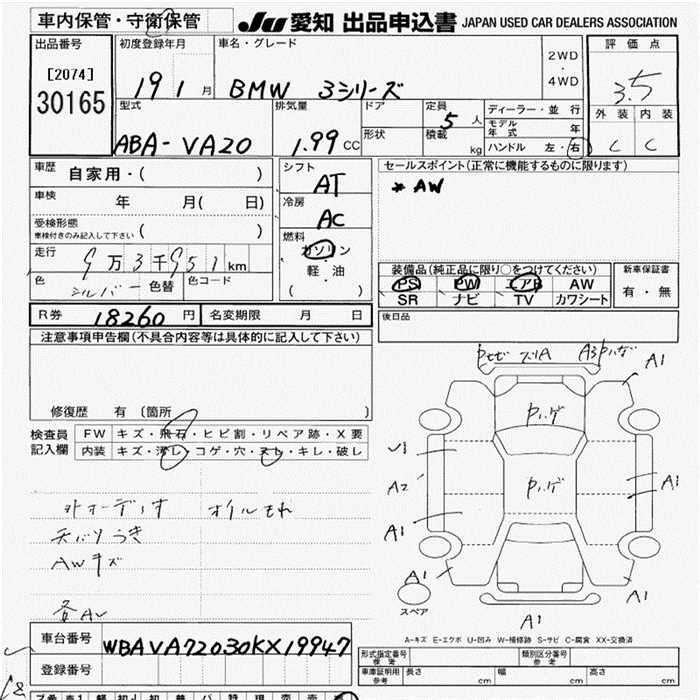 車内保管・守衛保管
JU 愛知 出品申込書 JAPAN USED CAR DEALERS ASSOCIATION
出品番号
[2074]
30165
初度登録年月
19 1 月
車名・グレード
BMW 3シリーズ
2WD
・
4WD
評価点
3.5
外装 内装
C C
型式
ABA-VA20
排気量
1.99 CC
ドア
形状
定員
5 人
積載
kg
ディーラー・並行
モデル年式 年
ハンドル 左・右
車歴
自家用・( )
車検
年 月( 日)
受検形態
車検付きのみ記入して下さい ( )
走行
9万3千951km
色
シルバー 色替
色コード
シフト
AT
冷房
AC
燃料
ガソリン
・
軽・油
( )
セールスポイント(正常に機能するものに限ります)
* AW
装備品(純正品に限り○をつけてください)
PS PW エアB AW
SR ナビ TV カワシート
新車保証書
有・無
R券 18260 円
名変期限 月 日
後日品
注意事項申告欄(不具合内容等は具体的に記入して下さい)
修復歴 有(箇所 )
検査員
記入欄
FW キズ・飛石・ヒビ割・リペア跡・X要
内装 キズ・汚し・コゲ・穴・スレ・キレ・破し
オイルもれ
天バリうき
AWキズ
A1
A1
A2
A1
A1
A1
A1
A1
スペア
A-キズ E-エクボ U-凹み W-補修跡 S-サビ C-腐食 XX-交換済
車台番号
WBAVA72030KX19947
登録番号
形式指定番号
備考
類別区分番号
参考
車庫証明用
参考
長さ cm 幅 cm 高さ cm